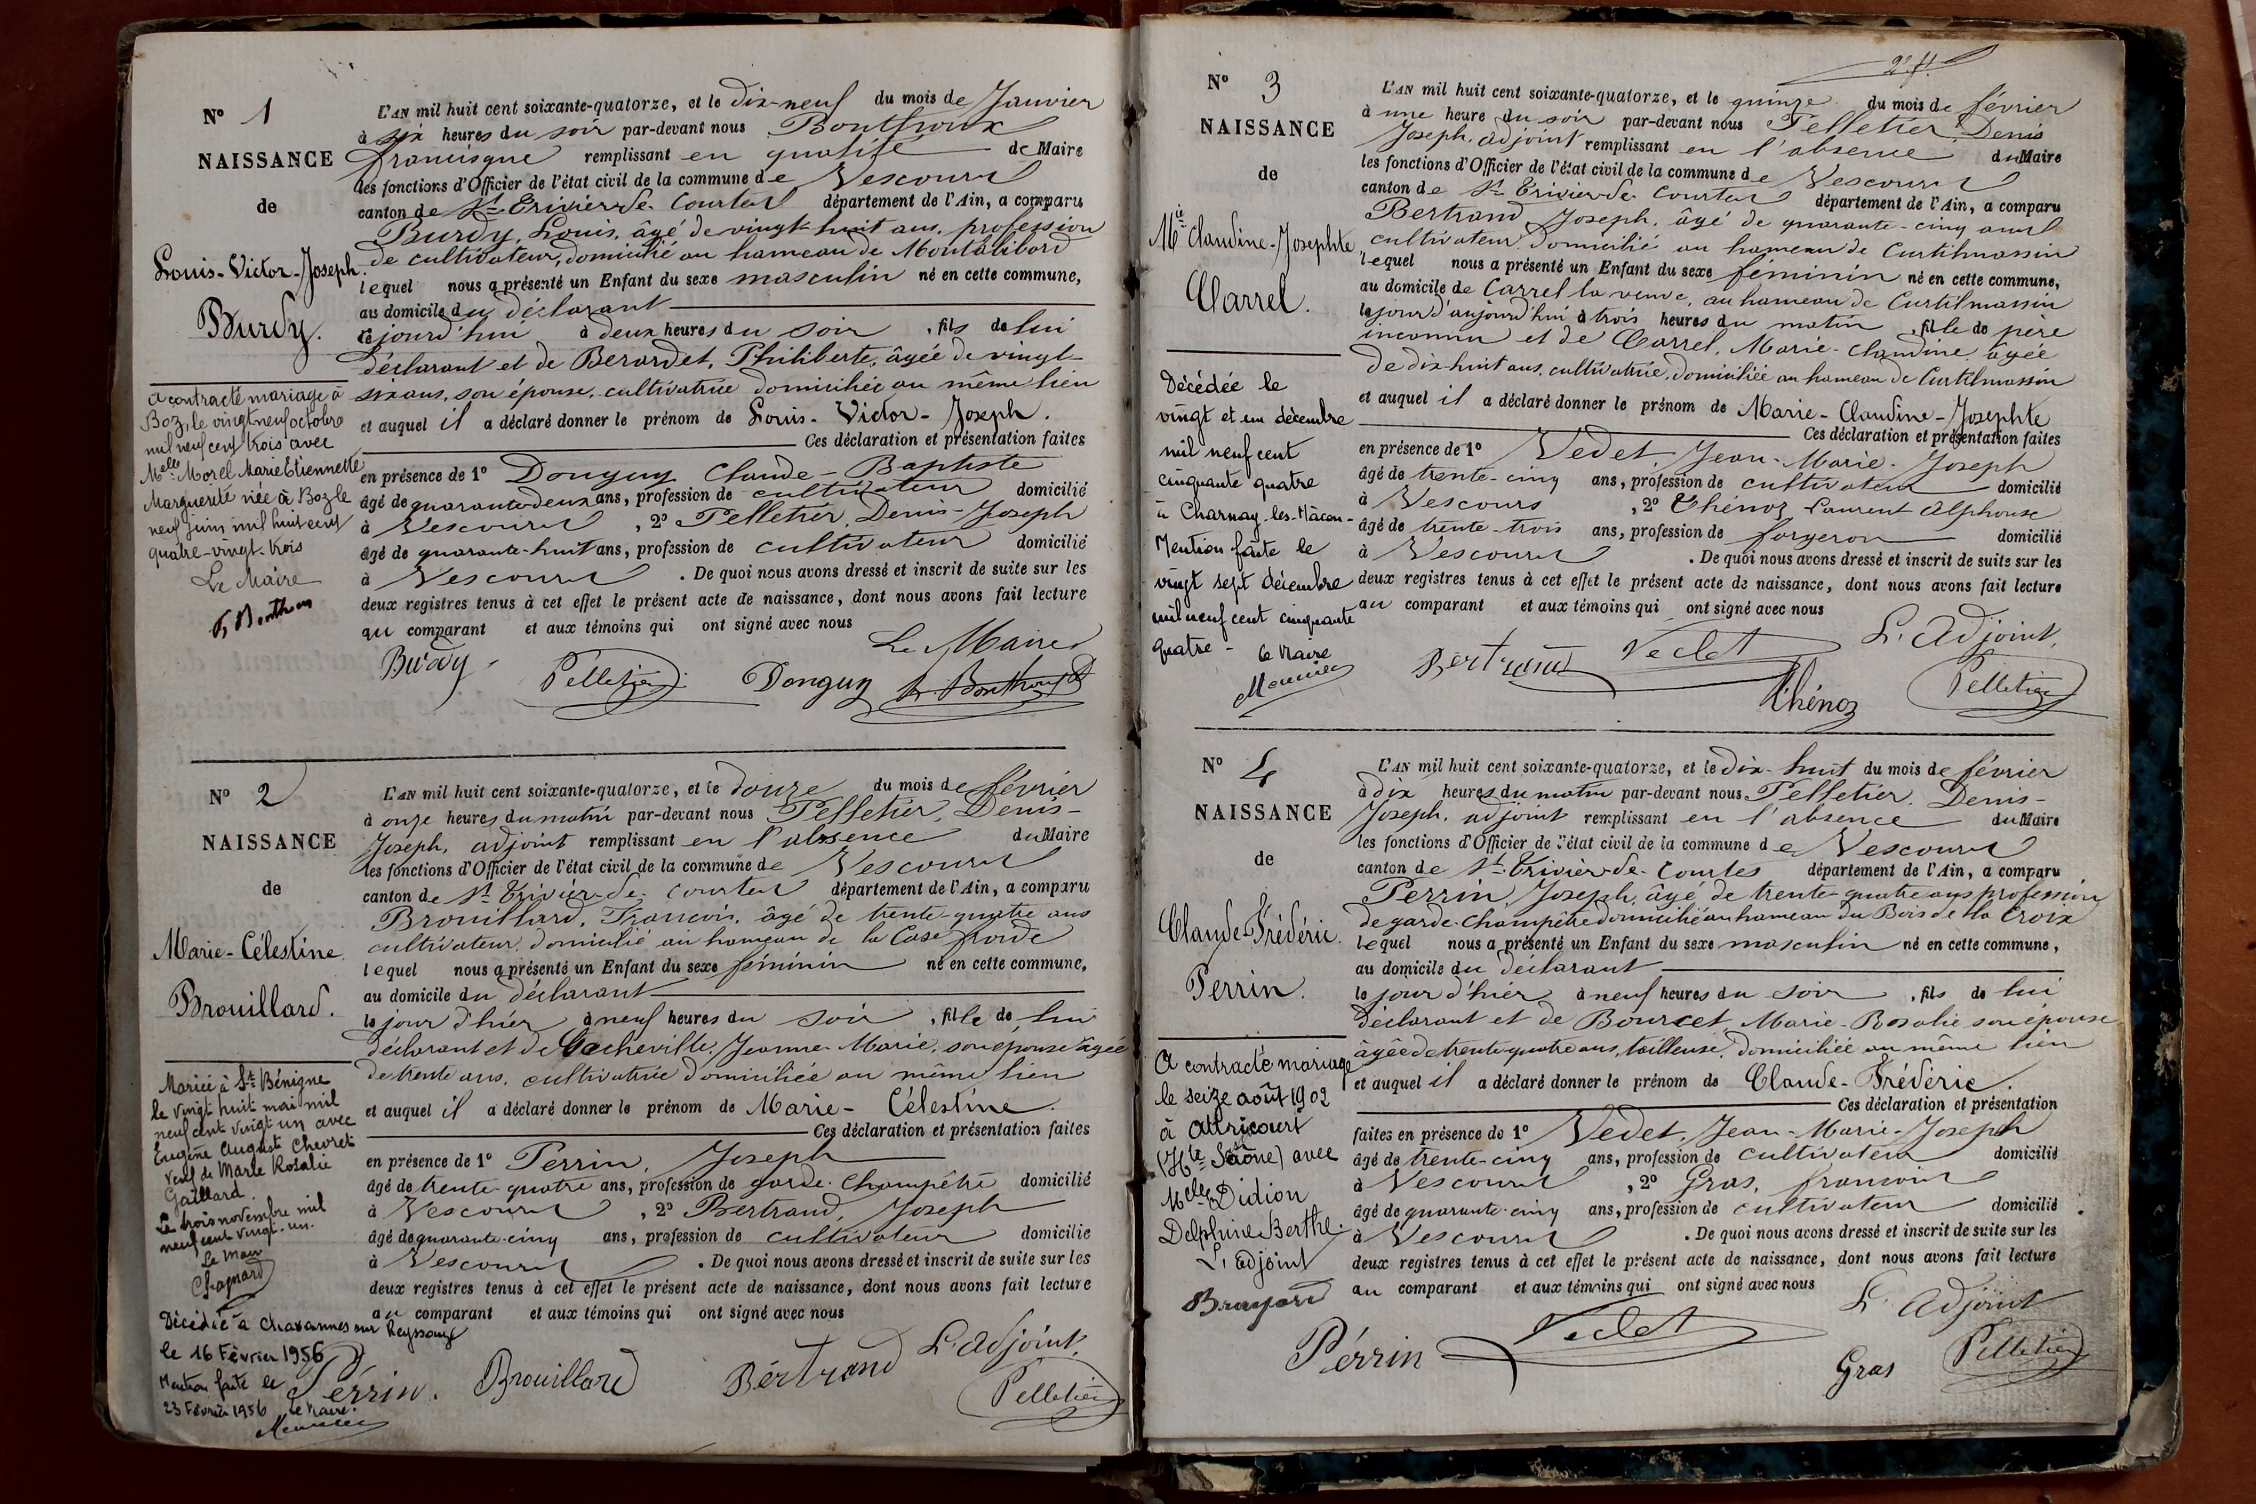 Nº 1
NAISSANCE
de
Louis-Victor-Joseph
Burdy.
a contracté mariage à
Boz, le vingt neuf octobre
mil neuf cent trois avec
Melle Morel Marie Etiennette
Marguerite née à Boz le
neuf juin mil huit cent
quatre-vingt-trois
Le Maire
L'AN mil huit cent soixante-quatorze, et le dix-neuf du mois de Janvier
à six heures du soir par-devant nous Bonthoux
Francisque remplissant en qualité de Maire
les fonctions d'Officier de l'état civil de la commune de Vescours
canton de St Trivier-de-Courtes département de l'Ain, a comparu
Burdy, Louis, âgé de vingt-huit ans, profession
de cultivateur, domicilié au hameau de Montalibord
lequel nous a présenté un Enfant du sexe masculin né en cette commune,
au domicile du déclarant
cejourd'hui à deux heures du soir, fils de lui
déclarant et de Berardet, Philiberte, âgée de vingt-
six ans, son épouse, cultivatrice domiciliée au même lieu
et auquel il a déclaré donner le prénom de Louis-Victor-Joseph.
Ces déclaration et présentation faites
en présence de 1º Donguy Claude-Baptiste
âgé de quarante-deux ans, profession de cultivateur domicilié
à Vescours, 2º Pelletier, Denis-Joseph
âgé de quarante-huit ans, profession de cultivateur domicilié
à Vescours. De quoi nous avons dressé et inscrit de suite sur les
deux registres tenus à cet effet le présent acte de naissance, dont nous avons fait lecture
au comparant et aux témoins qui ont signé avec nous
Le Maire
Burdy Pelletier Donguy Bonthoux
Nº 2
NAISSANCE
de
Marie-Célestine
Brouillard.
Mariée à St Bénigne
le vingt huit mai mil
neuf cent vingt un avec
Eugène August Chevret
veuf de Marie Rosalie
Gaillard.
Le trois novembre mil
neuf cent vingt-un.
Le Maire
Chagnard
Décédée à Chavannes sur Reyssouze
le 16 Février 1956
Mention faite le
23 Février 1956 Le Maire.
L'AN mil huit cent soixante-quatorze, et le douze du mois de février
à onze heures du matin par-devant nous Pelletier, Denis-
Joseph, adjoint remplissant en l'absence du Maire
les fonctions d'Officier de l'état civil de la commune de Vescours
canton de St Trivier-de-Courtes département de l'Ain, a comparu
Brouillard, François, âgé de trente-quatre ans
cultivateur, domicilié au hameau de la Case froide
lequel nous a présenté un Enfant du sexe féminin né en cette commune,
au domicile du déclarant
le jour d'hier à neuf heures du soir, fille de lui
déclarant et de Gacheville, Jeanne Marie, son épouse âgée
de trente ans, cultivatrice domiciliée au même lieu
et auquel il a déclaré donner le prénom de Marie-Célestine.
Ces déclaration et présentation faites
en présence de 1º Perrin, Joseph
âgé de trente-quatre ans, profession de garde-champêtre domicilié
à Vescours, 2º Bertrand, Joseph
âgé de quarante-cinq ans, profession de cultivateur domicilié
à Vescours. De quoi nous avons dressé et inscrit de suite sur les
deux registres tenus à cet effet le présent acte de naissance, dont nous avons fait lecture
au comparant et aux témoins qui ont signé avec nous
L'adjoint,
Perrin. Brouillard Bértrand Pelletier
2e f.
Nº 3
NAISSANCE
de
Mie Claudine-Josephte
Carrel.
Décédée le
vingt et un décembre
mil neuf cent
cinquante quatre
à Charnay-les-Mâcon-
Mention faite le
vingt sept décembre
mil neuf cent cinquante
quatre-
Le Maire
L'AN mil huit cent soixante-quatorze, et le quinze du mois de février
à une heure du soir par-devant nous Pelletier Denis
Joseph, adjoint remplissant en l'absence du Maire
les fonctions d'Officier de l'état civil de la commune de Vescours
canton de St Trivier-de-Courtes département de l'Ain, a comparu
Bertrand Joseph, âgé de quarante-cinq ans
cultivateur domicilié au hameau de Curtilmassin
lequel nous a présenté un Enfant du sexe féminin né en cette commune,
au domicile de Carrel la veuve, au hameau de Curtilmassin
le jour d'aujourd'hui à trois heures du matin, fille de père
inconnu et de Carrel, Marie-Claudine âgée
de dix-huit ans, cultivatrice, domiciliée au hameau de Curtilmassin
et auquel il a déclaré donner le prénom de Marie-Claudine-Josephte
Ces déclaration et présentation faites
en présence de 1º Vedet, Jean-Marie-Joseph
âgé de trente-cinq ans, profession de cultivateur domicilié
à Vescours, 2º Thénoz Laurent Alphonse
âgé de trente-trois ans, profession de forgeron domicilié
à Vescours. De quoi nous avons dressé et inscrit de suite sur les
deux registres tenus à cet effet le présent acte de naissance, dont nous avons fait lecture
au comparant et aux témoins qui ont signé avec nous
L'adjoint,
Bertrand Vedet Thénoz Pelletier
Nº 4
NAISSANCE
de
Claude-Frédéric
Perrin.
A contracté mariage
le seize août 1902
à Autricourt
(Hte Saône) avec
Melle Didion
Delphine Berthe.
L'adjoint
Brayard
L'AN mil huit cent soixante-quatorze, et le dix-huit du mois de février
à dix heures du matin par-devant nous Pelletier, Denis-
Joseph, adjoint remplissant en l'absence du Maire
les fonctions d'Officier de l'état civil de la commune de Vescours
canton de St Trivier-de-Courtes département de l'Ain, a comparu
Perrin, Joseph, âgé de trente-quatre ans profession
de garde-champêtre domicilié au hameau du Bois de la Croix
lequel nous a présenté un Enfant du sexe masculin né en cette commune,
au domicile du déclarant
le jour d'hier à neuf heures du soir, fils de lui
déclarant et de Bourcet Marie-Rosalie son épouse
âgée de trente-quatre ans, tailleuse, domiciliée au même lieu
et auquel il a déclaré donner le prénom de Claude-Frédéric.
Ces déclaration et présentation
faites en présence de 1º Vedet, Jean-Marie-Joseph
âgé de trente-cinq ans, profession de cultivateur domicilié
à Vescours, 2º Gras, françois
âgé de quarante-cinq ans, profession de cultivateur domicilié
à Vescours. De quoi nous avons dressé et inscrit de suite sur les
deux registres tenus à cet effet le présent acte de naissance, dont nous avons fait lecture
au comparant et aux témoins qui ont signé avec nous
L'adjoint
Pérrin Vedet Gras Pelletier